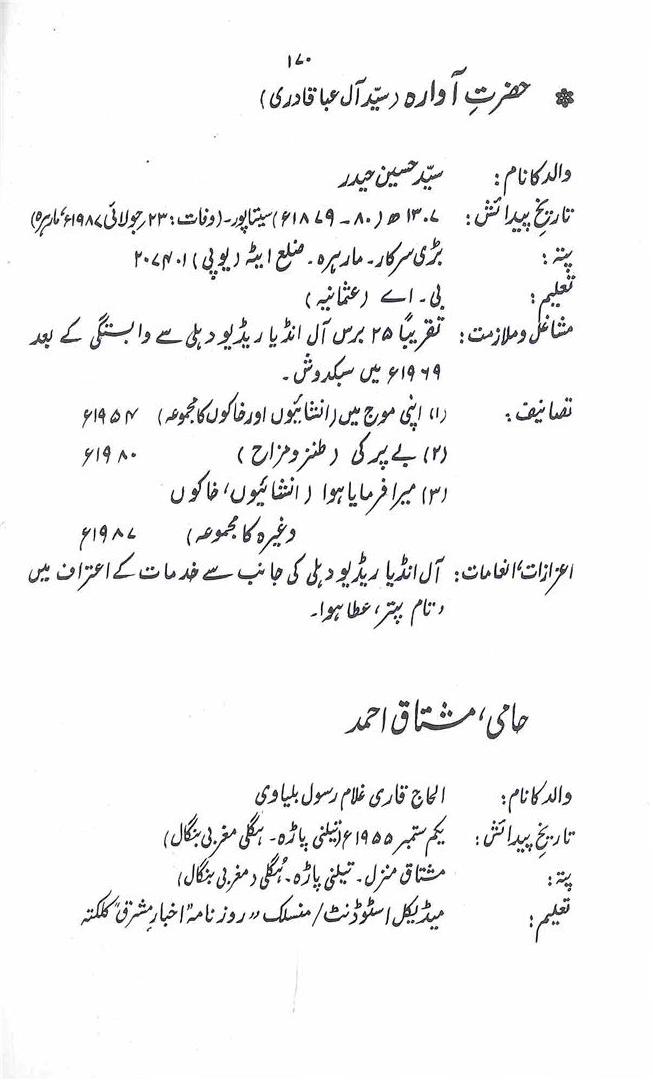 ۱۷۰
❁ حضرتِ آوارہ (سیّد آل عبا قادری)
والد کا نام: سیّد حسین حیدر
تاریخِ پیدائش: ۱۳۰۷ھ (۸۰ - ۱۸۷۹ء) سیتاپور - (وفات: ۲۳ جولائی ۱۹۸۷ء، مارہرہ)
پتہ: بڑی سرکار - مارہرہ - ضلع ایٹہ (یوپی) ۲۰۷۴۰۱
تعلیم: بی - اے (عثمانیہ)
مشاغل و ملازمت: تقریباً ۲۵ برس آل انڈیا ریڈیو دہلی سے وابستگی کے بعد
۱۹۶۹ء میں سبکدوش -
تصانیف: (۱) اپنی موج میں (انشائیوں اور خاکوں کا مجموعہ) ۱۹۵۴ء
(۲) بے پر کی (طنز و مزاح) ۱۹۸۰ء
(۳) میرا فرمایا ہوا (انشائیوں، خاکوں
وغیرہ کا مجموعہ) ۱۹۸۷ء
اعزازات، انعامات: آل انڈیا ریڈیو دہلی کی جانب سے خدمات کے اعتراف میں
'تام پتر' عطا ہوا۔
حامی، مشتاق احمد
والد کا نام: الحاج قاری غلام رسول بلیاوی
تاریخِ پیدائش: یکم ستمبر ۱۹۵۵ء (تیلنی پاڑہ - ہگلی مغربی بنگال)
پتہ: مشتاق منزل - تیلنی پاڑہ - ہُگلی (مغربی بنگال)
تعلیم: میڈیکل اسٹوڈنٹ / منسلک "روزنامہ" اخبارِ مشرق" کلکتہ